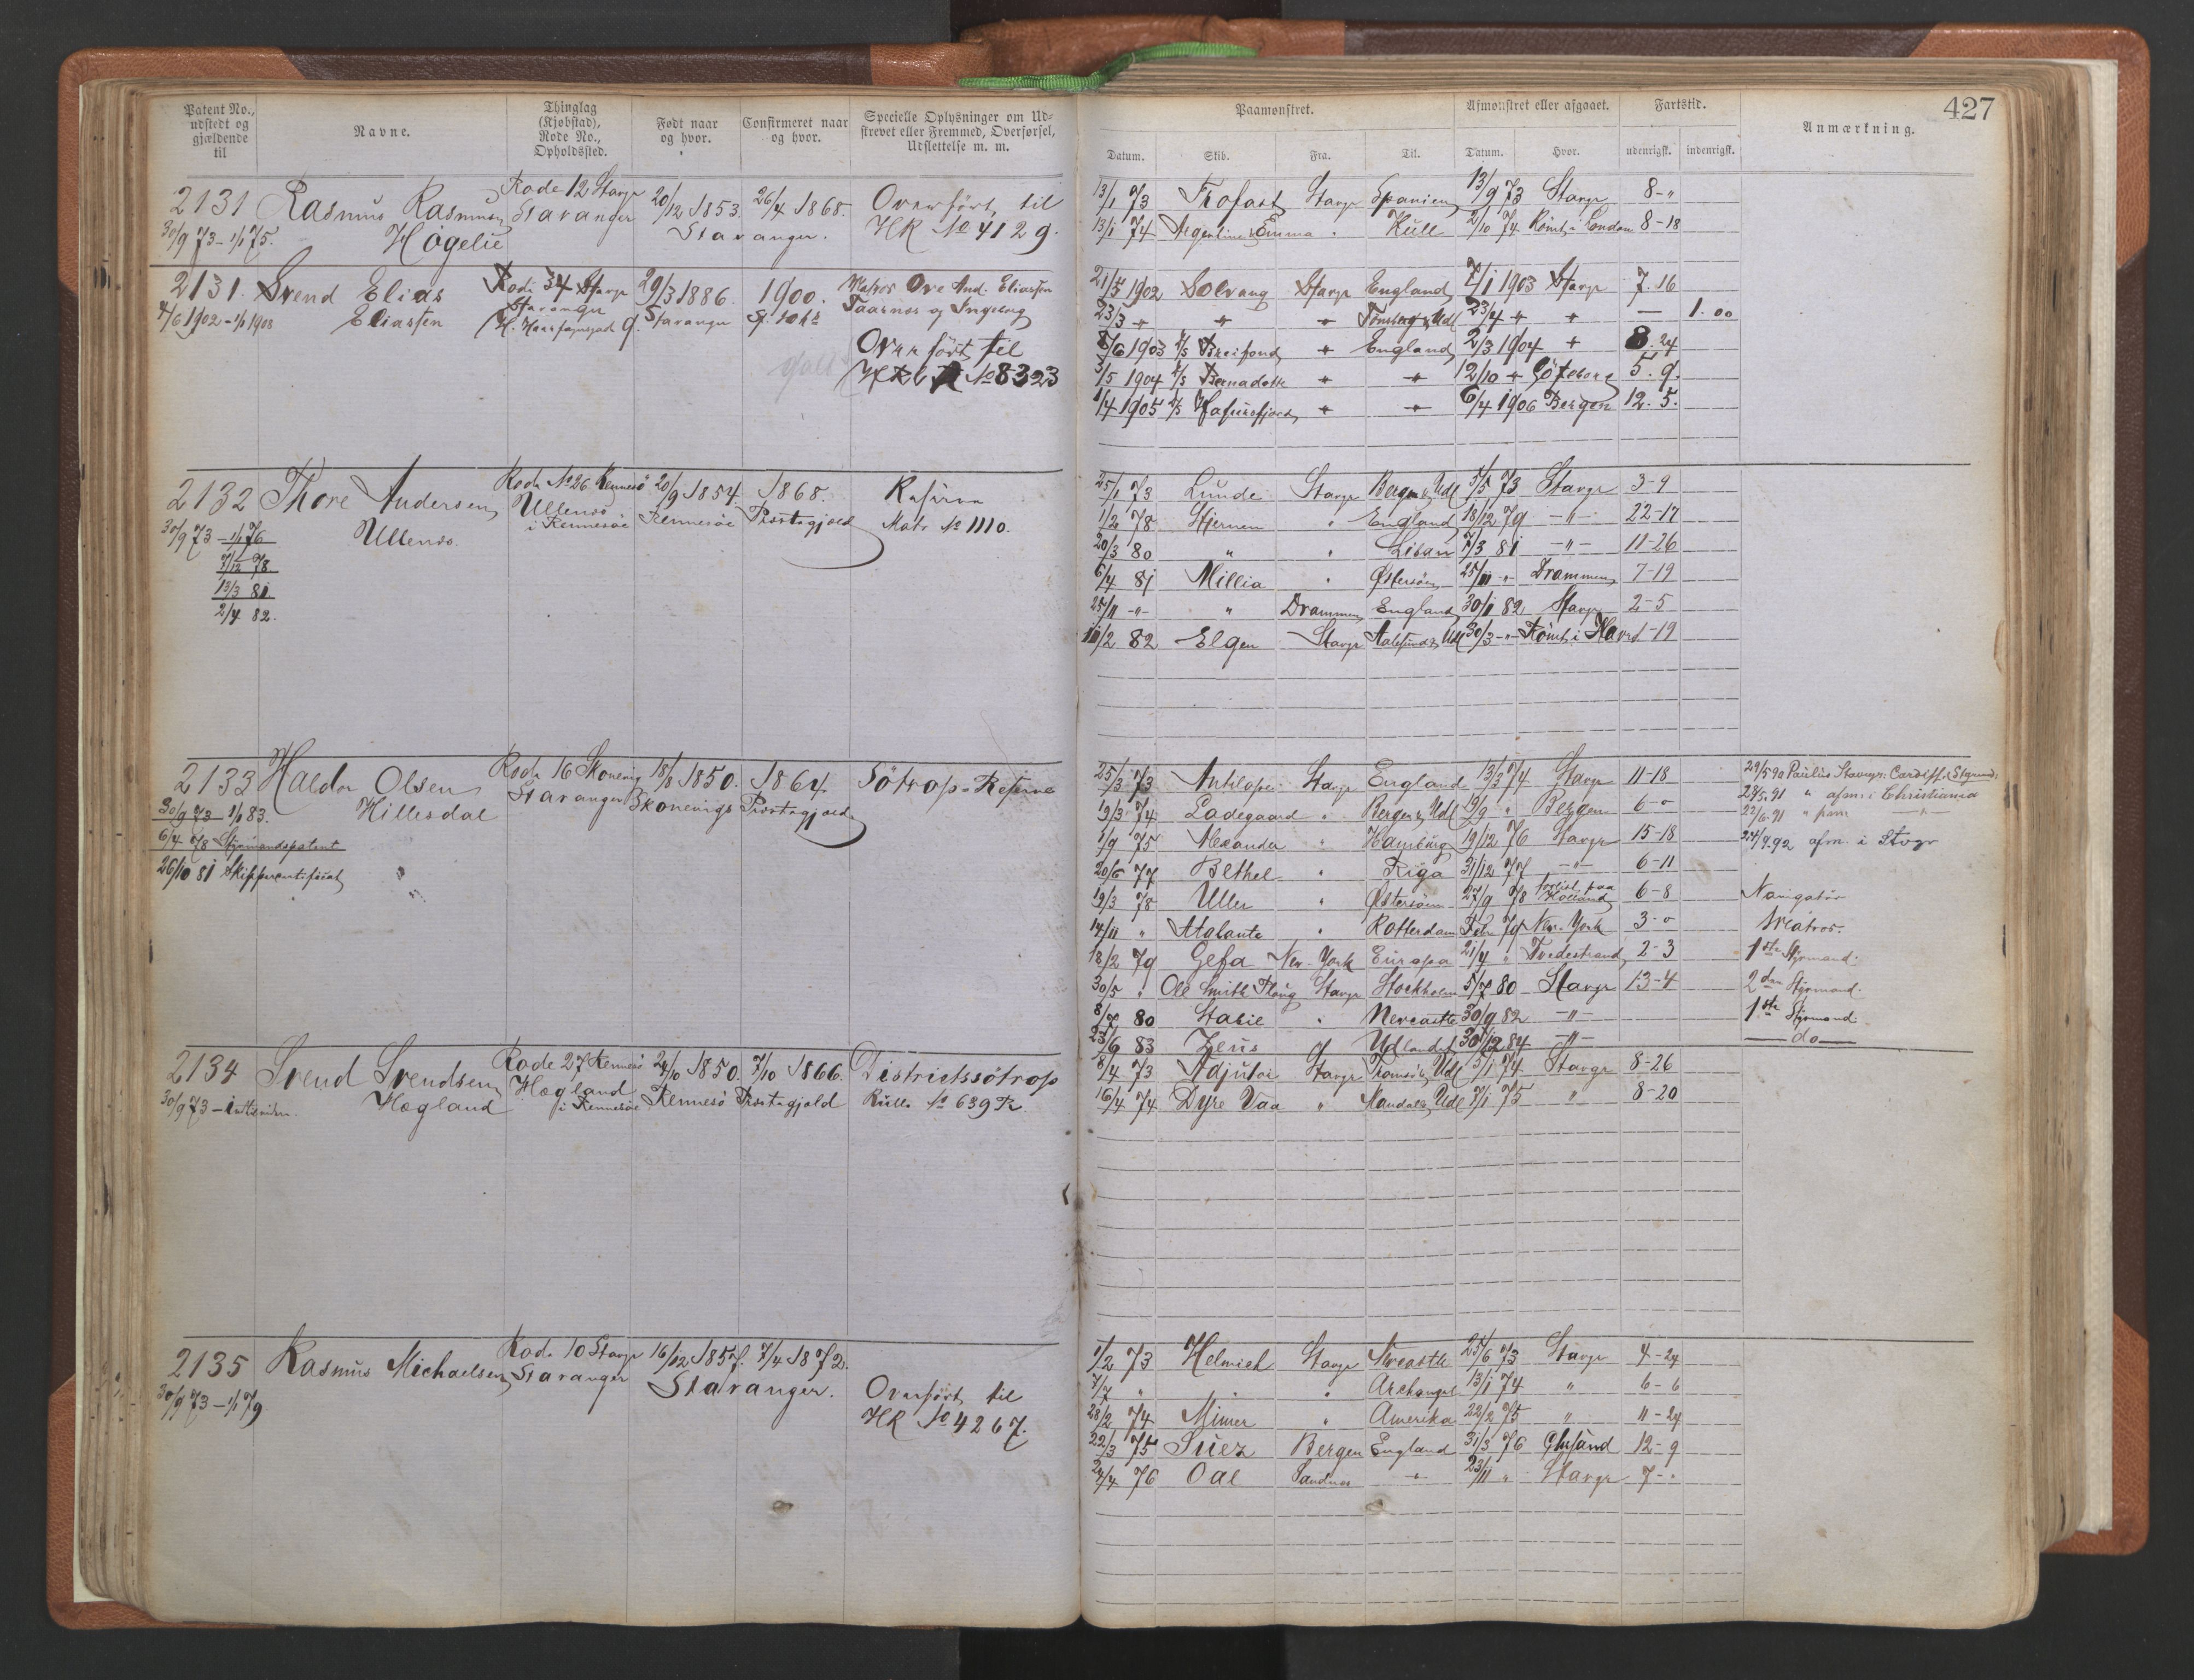 427
Patent No., udstedt og gjældende til
Navne.
Thinglag (Kjøbstad), Rode No., Opholdssted.
Født naar og hvor.
Confirmeret naar og hvor.
Specielle Oplysninger om Udstrevet eller Fremmed, Overførsel, Udslettelse m. m.
Paamønstret.
Afmønstret eller afgaaet.
Fartstid.
Anmærkning.
Datum. Skib. Fra. Til. Datum. Hvor. udenrigsk. indenrigsk.
2131 Rasmus Rasmusen Rode 12 Stavgr 20/12 1853. 26/4 1868. Overført til
30/9 73 – 1/1 75. Høgelie Stavanger Stavanger. HR No 4129.
13/1 73 Trofast Stavgr Spanien 13/9 73 Stavgr 8-"
13/1 74 Argentine Emma " Hull 2/10 74 Rømt i London 8-18
2131. Svend Elias Rode 34 Stavgr 29/3 1886. 1900. Ove And. Eliassen
4/6 1902 – 1/1 1908 Eliassen Stavanger Stavanger Taarnes og Ingeborg
Overført til
No 8323
21/5 1902 Solvang Stavgr England 7/1 1903 Stavgr 7.16
23/3 " " " Tønsberg & Udl 23/4 " " — 1.00
8/6 1903 Breifond " England 2/3 1904 " 8.24
3/5 1904 Bernadotte " " 12/10 " Göteborg 5.9.
1/4 1905 Hafursfjord " " 6/4 1906 Bergen 12.5.
2132 Thore Andersen Rode No 26 Rennesö 20/9 1854. 1868. Reserve
30/9 73 – 1/1 76 Ullenæs. Ullenæs i Rennesöe Rennesöe Præstegjæld Matr No 1110.
7/12 78
13/3 81
2/4 82.
25/1 73 Lunde Stavgr Bergen & Udl 5/5 73 Stavgr 3-9
1/2 78 Stjernen " England 18/12 79 -"- 22-17
20/3 80 " " Libau 7/3 81 -"- 11-26
6/4 81 Millia " Østersøen 25/11 " Drammen 7-19
25/11 -"- " Drammen England 30/1 82 Stavgr 2-5
11/2 82 Elgen Stavgr Aalesund & Udl 30/3 -"- Rømt i Havre 1-19
2133 Haldor Olsen Rode 16 Skonevig 18/8 1850. 1864. Søtrop-Reserve
30/9 73 – 1/1 83. Hillesdal Stavanger Skonevigs Præstegjæld
6/4 78 Styrmandspatent
26/10 81 Skippercertificat
25/3 73 Antilopen Stavgr England 13/3 74 Stavgr 11-18
19/3 74 Ladegaard " Bergen & Udl 19/9 " Bergen 6-0
1/9 75 Alexander " Hamburg 19/12 76 Stavgr 15-18
20/6 77 Bethel " Riga 31/12 77 -"- 6-11
19/3 78 Uller " Østersøen 27/9 78 forlist paa Holland 6-8 Navigatør
14/11 " Atalante " Rotterdam Febr 79 New-York 3-0 Matros.
18/2 79 Gefa New-York Europa 21/4 " Tvedestrand 2-3 1ste Styrmand.
30/5 " Ole Smith Ploug Stavgr Stockholm 5/7 80 Stavgr 13-4 2den Styrmand.
8/7 80 Stabil " Newcastle 30/9 82 -"- 1ste Styrmand.
23/6 83 Zeus " Udlandet 30/12 84 -"- do
29/5 90 Paulus Stavgr: Cardiff. Styrmd:
28/5 91 " afm. i Christiania
22/6 91 " paam
24/9 92 afm. i Stvgr
2134 Svend Svendsen Rode 27 Rennesö 24/10 1850. 7/10 1866. Districtssøtrop
30/9 73 – Hægland Hægland i Rennesöe Rennesö Præstegjæld Rulle No 639
8/4 73 Adjutor Stavgr Tromsö & Udl 5/1 74 Stavgr 8-26
16/4 74 Dyre Vaa " Mandal & Udl 7/1 75 " 8-20
2135 Rasmus Michaelsen Rode 10 Stavgr 16/12 1857. 7/4 1872.
30/9 73 – 1/1 79 Stavanger Stavanger. Overført til
HR No 4267.
1/2 73 Helmich Stavgr Newcastle 25/6 73 Stavgr 4-24
7/7 " " " Archangel 13/1 74 " 6-6
28/2 74 Mimer " Amerika 22/2 75 " 11-24
22/3 75 Suez Bergen England 31/3 76 Chrsand 12-9
24/4 76 Oal Sandnes -"- 23/11 " Stavgr 7-"